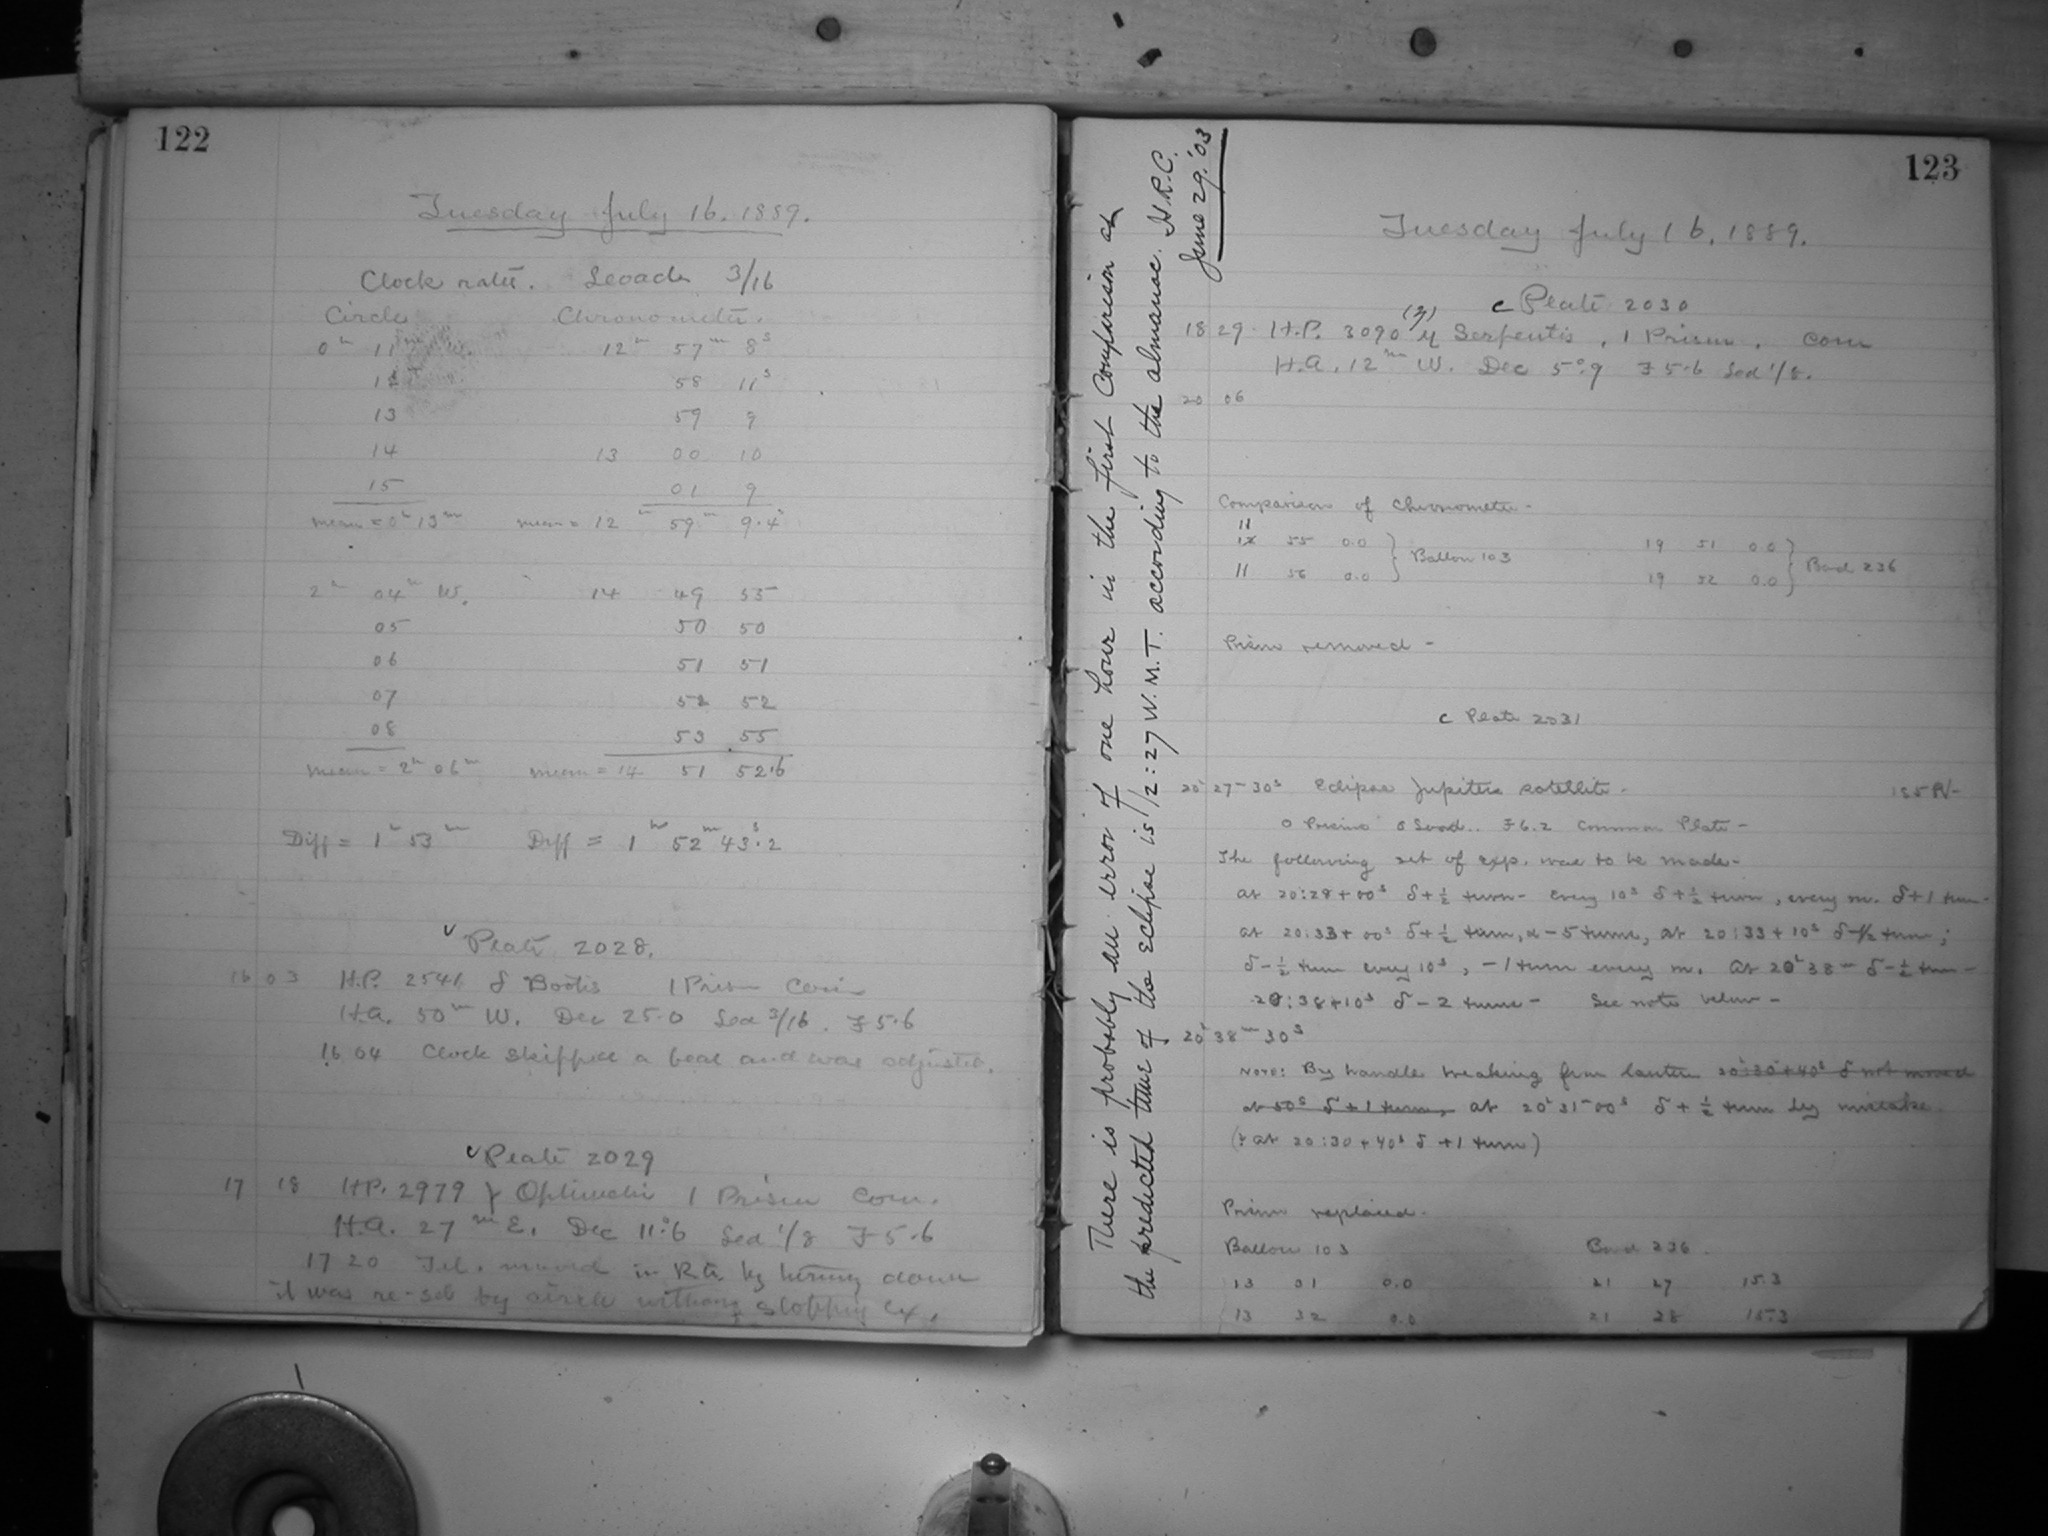 122
Tuesday July 16, 1889.
Clock rate. Seoade 3/16
Circle Chronometer.
0h 11m W. 12h 57m 8s
12 58 11s
13 59 9
14 13 00 10
15 01 9
mean = 0h 13m mean = 12h 59m 9.4s
2h 04m W. 14 49 55
05 50 50
06 51 51
07 52 52
08 53 55
mean = 2h 06m mean = 14 51 52.6
Diff = 1h 53m Diff = 1h 52m 43s.2
Plate 2028.
16 03 H.P. 2541 δ Bootis 1 Prism Com
H.A. 50m W. Dec 25.0 Sed 3/16. F 5.6
16 04 Clock skipped a beat and was adjusted.
Plate 2029
17 18 H.P. 2979 Ophiuchi 1 Prism Com.
H.A. 27m E. Dec 11°.6 Sed 1/8 F 5.6
17 20 Tel. moved in R.A. by
it was re-set by circle without stopping ex.
There is probably an error of one hour in the first Comparison as
the predicted time of the eclipse is 12:27 W.M.T. according to the almanac. H.R.C.
June 29. '03
123
Tuesday July 16, 1889.
c Plate 2030
18 29 H.P. 3090 (η) η Serpentis, 1 Prism, Com
H.A. 12m W. Dec 5°.9 F 5.6 Sed 1/8.
20 06
Comparison of Chronometer -
11
12 55 0.0 } Ballou 103 19 51 0.0 } Bond 236
11 56 0.0 19 52 0.0
Prism removed -
c Plate 2031
20h 27m 30s Eclipse Jupiters satellite -
0 Prisms F 6.2 Common Plate -
The following set of exp. was to be made -
at 20:28+00s δ+½ turn - Every 10s δ+½ turn, every m. δ+1 turn -
at 20:33+00s δ+½ turn, α-5 turns, at 20:33+10s δ-½ turn;
δ-½ turn every 10s, -1 turn every m. At 20h 38m δ-½ turn -
20:38+10s δ-2 turns - See note below -
20h 38m 30s
Note: By handle breaking from lantern 20:30+40s δ not moved
at 50s δ+1 turn, at 20h 31m 00s δ+½ turn by mistake.
(& at 20:30+40s δ+1 turn)
Prism replaced -
Ballou 103 Bond 236.
13 01 0.0 21 27 15.3
13 32 0.0 21 28 15.3